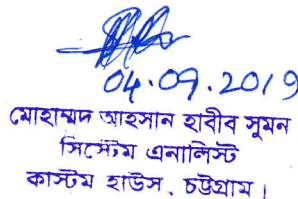 04.09.2019
মোহাম্মদ আহসান হাবীব সুমন
সিস্টেম এনালিস্ট
কাস্টম হাউস, চট্টগ্রাম।